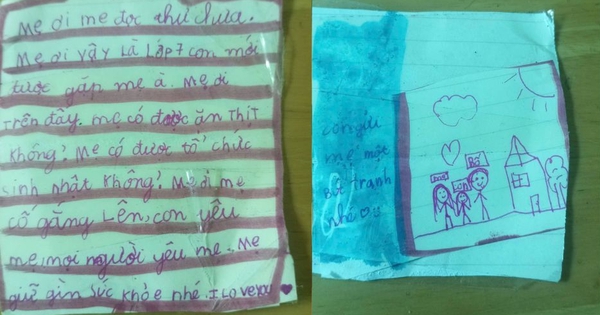 Mẹ ơi mẹ đọc thư chưa.
Mẹ ơi vậy là Lớp 7 con mới
được gặp mẹ à. Mẹ ơi
trên đấy. mẹ có được ăn thịt
không? Mẹ có được tổ chức
sinh nhật không? Mẹ ơi, mẹ
cố gắng Lên, con yêu
mẹ, mọi người yêu mẹ. Mẹ
giữ gìn sức khỏe nhé. I Love you
mẹ một
Bức tranh
nhé
Con
Bố